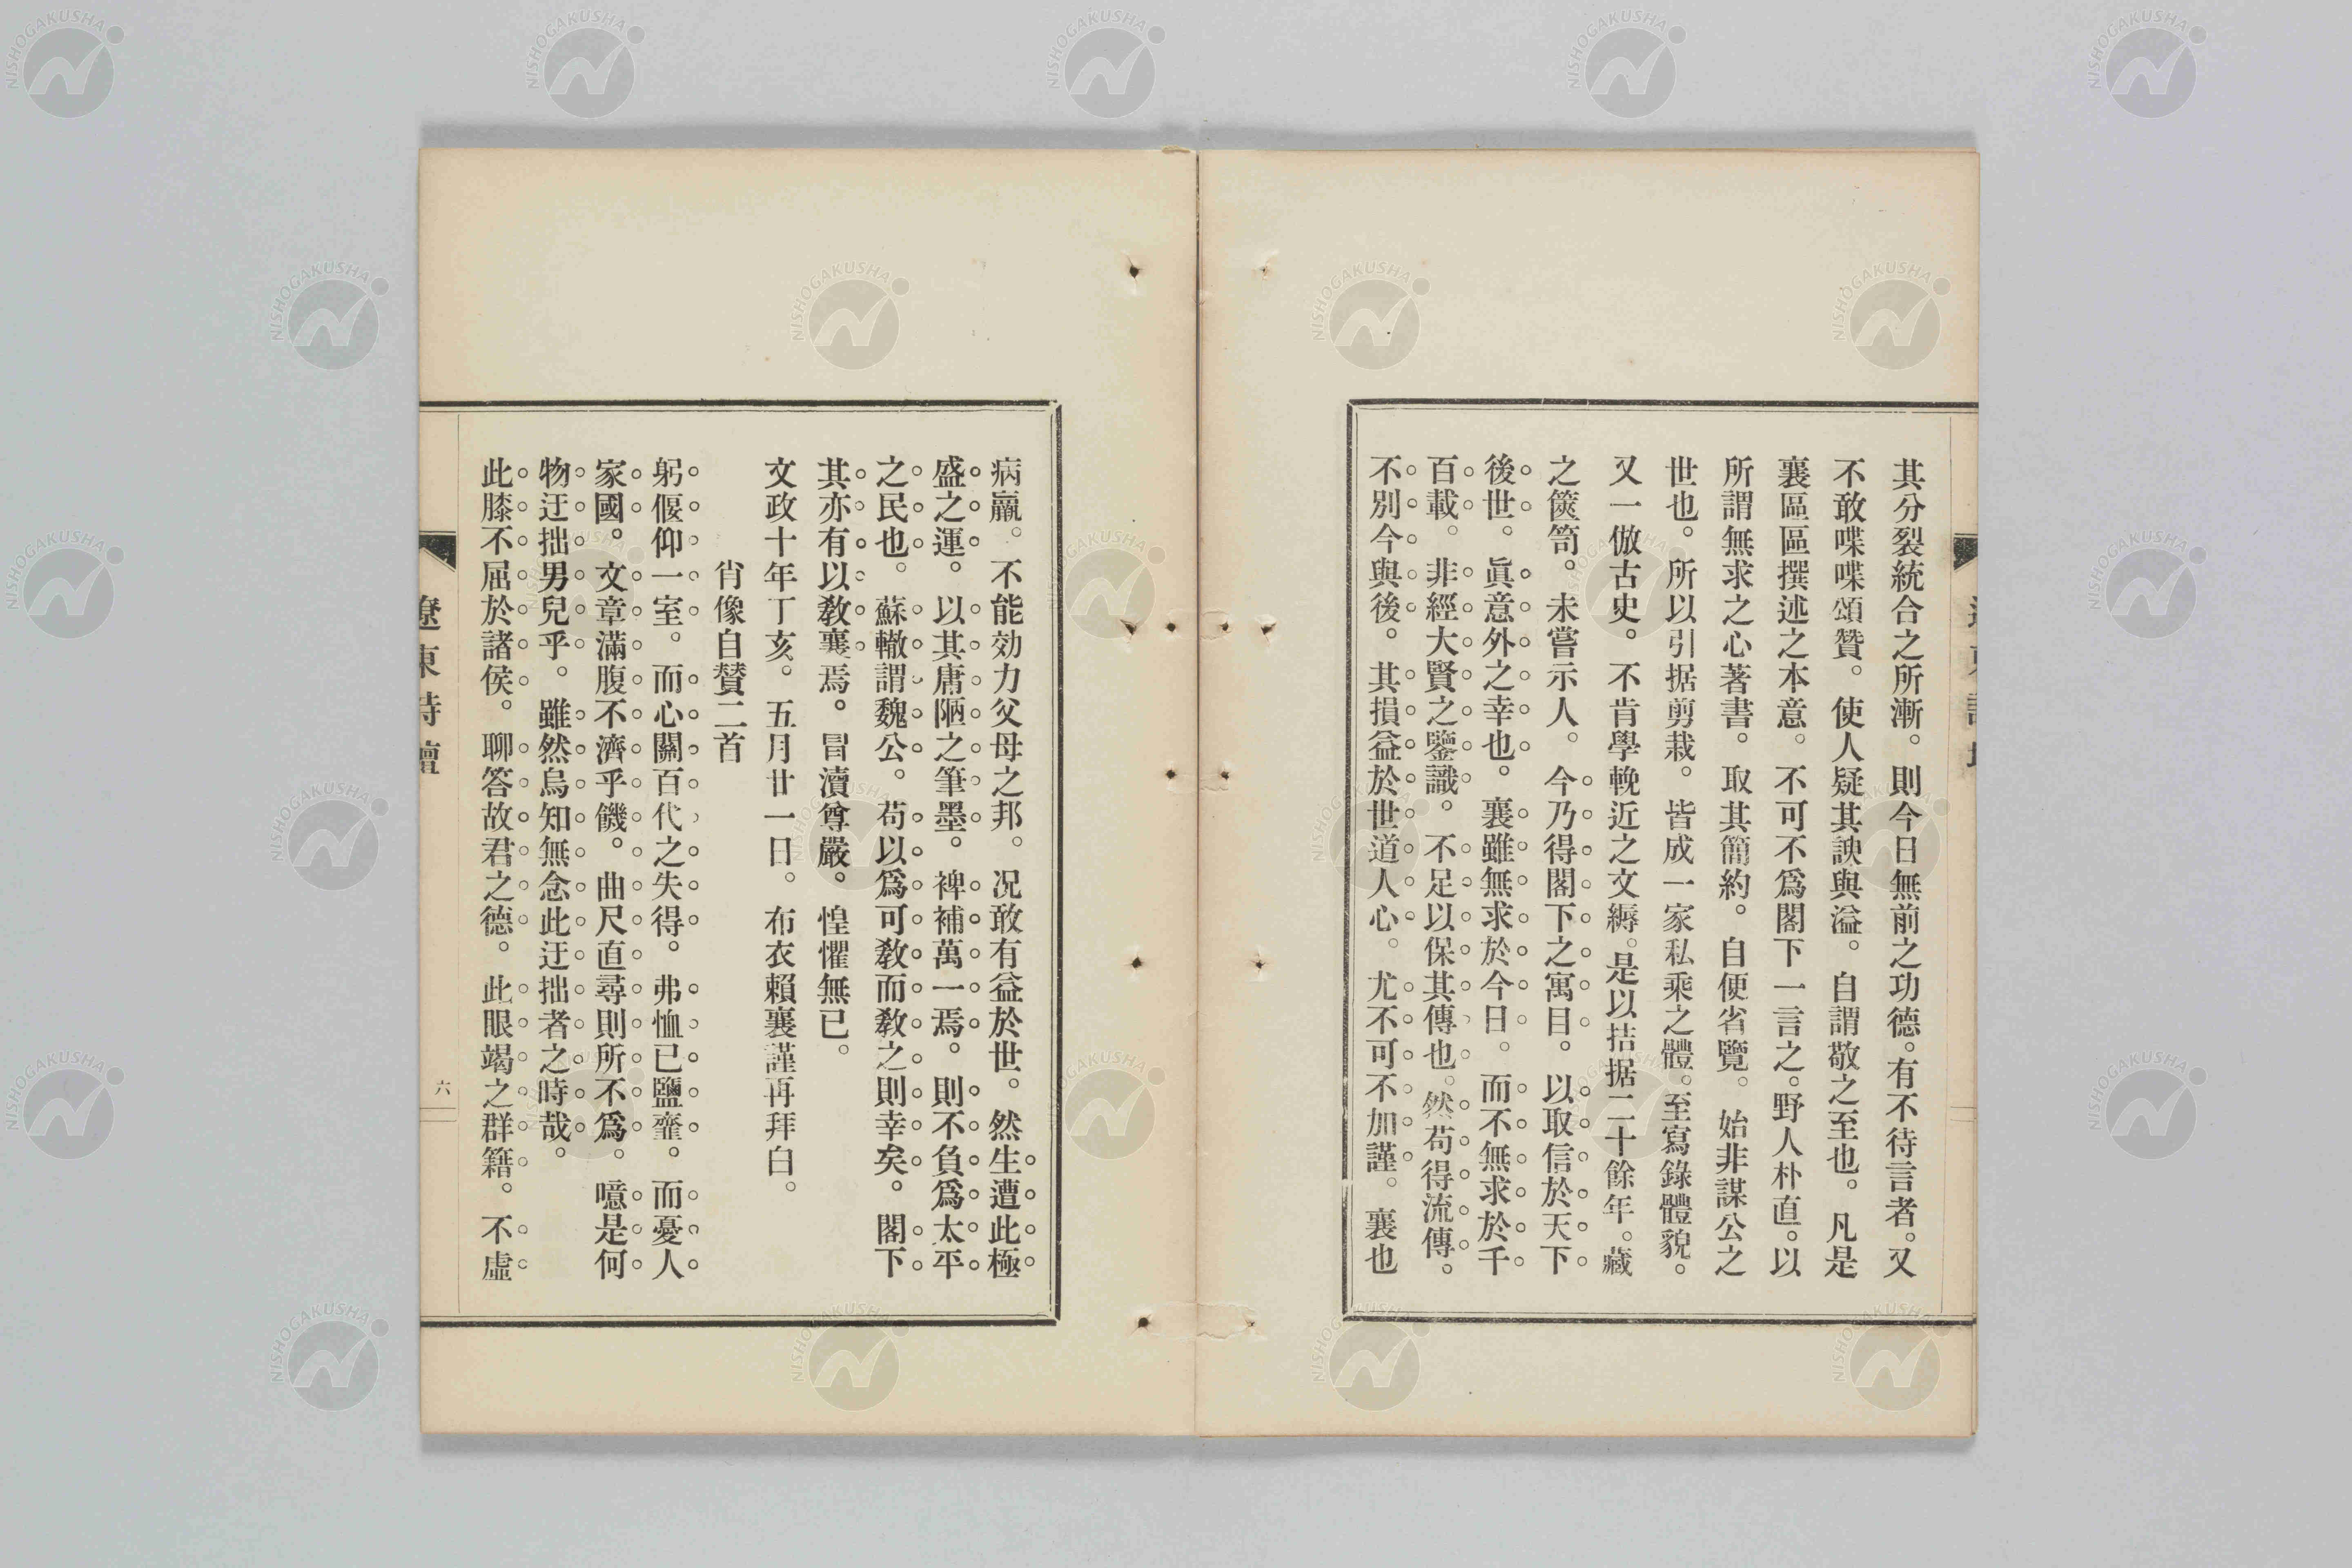 其分裂統合之所漸。則今日無前之功德。有不待言者。又
不敢喋喋頌贊。使人疑其諛與溢。自謂敬之至也。凡是
襄區區撰述之本意。不可不爲閣下一言之。野人朴直。以
所謂無求之心著書。取其簡約。自便省覽。始非謀公之
世也。所以引据剪栽。皆成一家私乘之體。至寫錄體貌。
又一倣古史。不肯學輓近之文縟。是以拮据二十餘年。藏
之篋笥。未嘗示人。今乃得閣下之寓目。以取信於天下
後世。眞意外之幸也。襄雖無求於今日。而不無求於千
百載。非經大賢之鑒識。不足以保其傳也。然苟得流傳。
不別今與後。其損益於世道人心。尤不可不加謹。襄也
病羸。不能効力父母之邦。況敢有益於世。然生遭此極
盛之運。以其唐陋之筆墨。裨補萬一焉。則不負爲太平
之民也。蘇轍謂魏公。苟以爲可敎而敎之則幸矣。閣下
其亦有以敎襄焉。冒瀆尊嚴。惶懼無已。
文政十年丁亥。五月廿一日。布衣賴襄謹再拜白。
肖像自贊二首
躬偃仰一室。而心關百代之失得。弗恤已鹽虀。而憂人
家國。文章滿腹不濟乎饑。曲尺直尋則所不爲。噫是何
物迂拙男兒乎。雖然烏知無念此迂拙者之時哉。
此膝不屈於諸侯。聊答故君之德。此眼竭之群籍。不虛
遼東詩壇
六
NISHOGAKUSHA